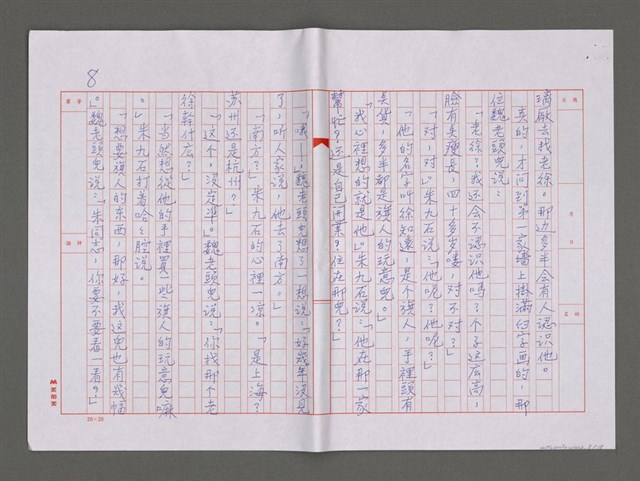 璃廠去找老徐。那边多半会有人認识他。
真的,才问到第一家墙上掛滿字画的,那
位魏老頭兒说:
「老徐?我还会不認识他吗?个子这広高,
臉有美瘦長,四十多岁嘍,对不对?」
「对,对。」朱九石说:「他呢?他呢?」
「他的名字叫徐知遠,是个旗人,手裡頭有
美货,多半都是旗人的玩意兒。」
「我心裡想的就是他。」朱九石说:「他在那一家
幫忙?还是自己河業?住在那兒?」
「哦——」魏老頭兒想了一想说:「好幾年沒見
了,听人家说,他去了南方。」
「南方?」朱九石的心裡一凉。「是上海?
苏州还是杭州?」
「这个,沒定準。」魏老頭兒说:「你找那个老
徐幹什広?」
「当然想從他的手裡買一些旗人的玩意兒嘛
。」朱九石打着哈哈腔说。
「想要旗人的东西,那好,我这兒也有幾幅
。」魏老頭兒说:「朱同志,你要不要看一看?」
8
20×20